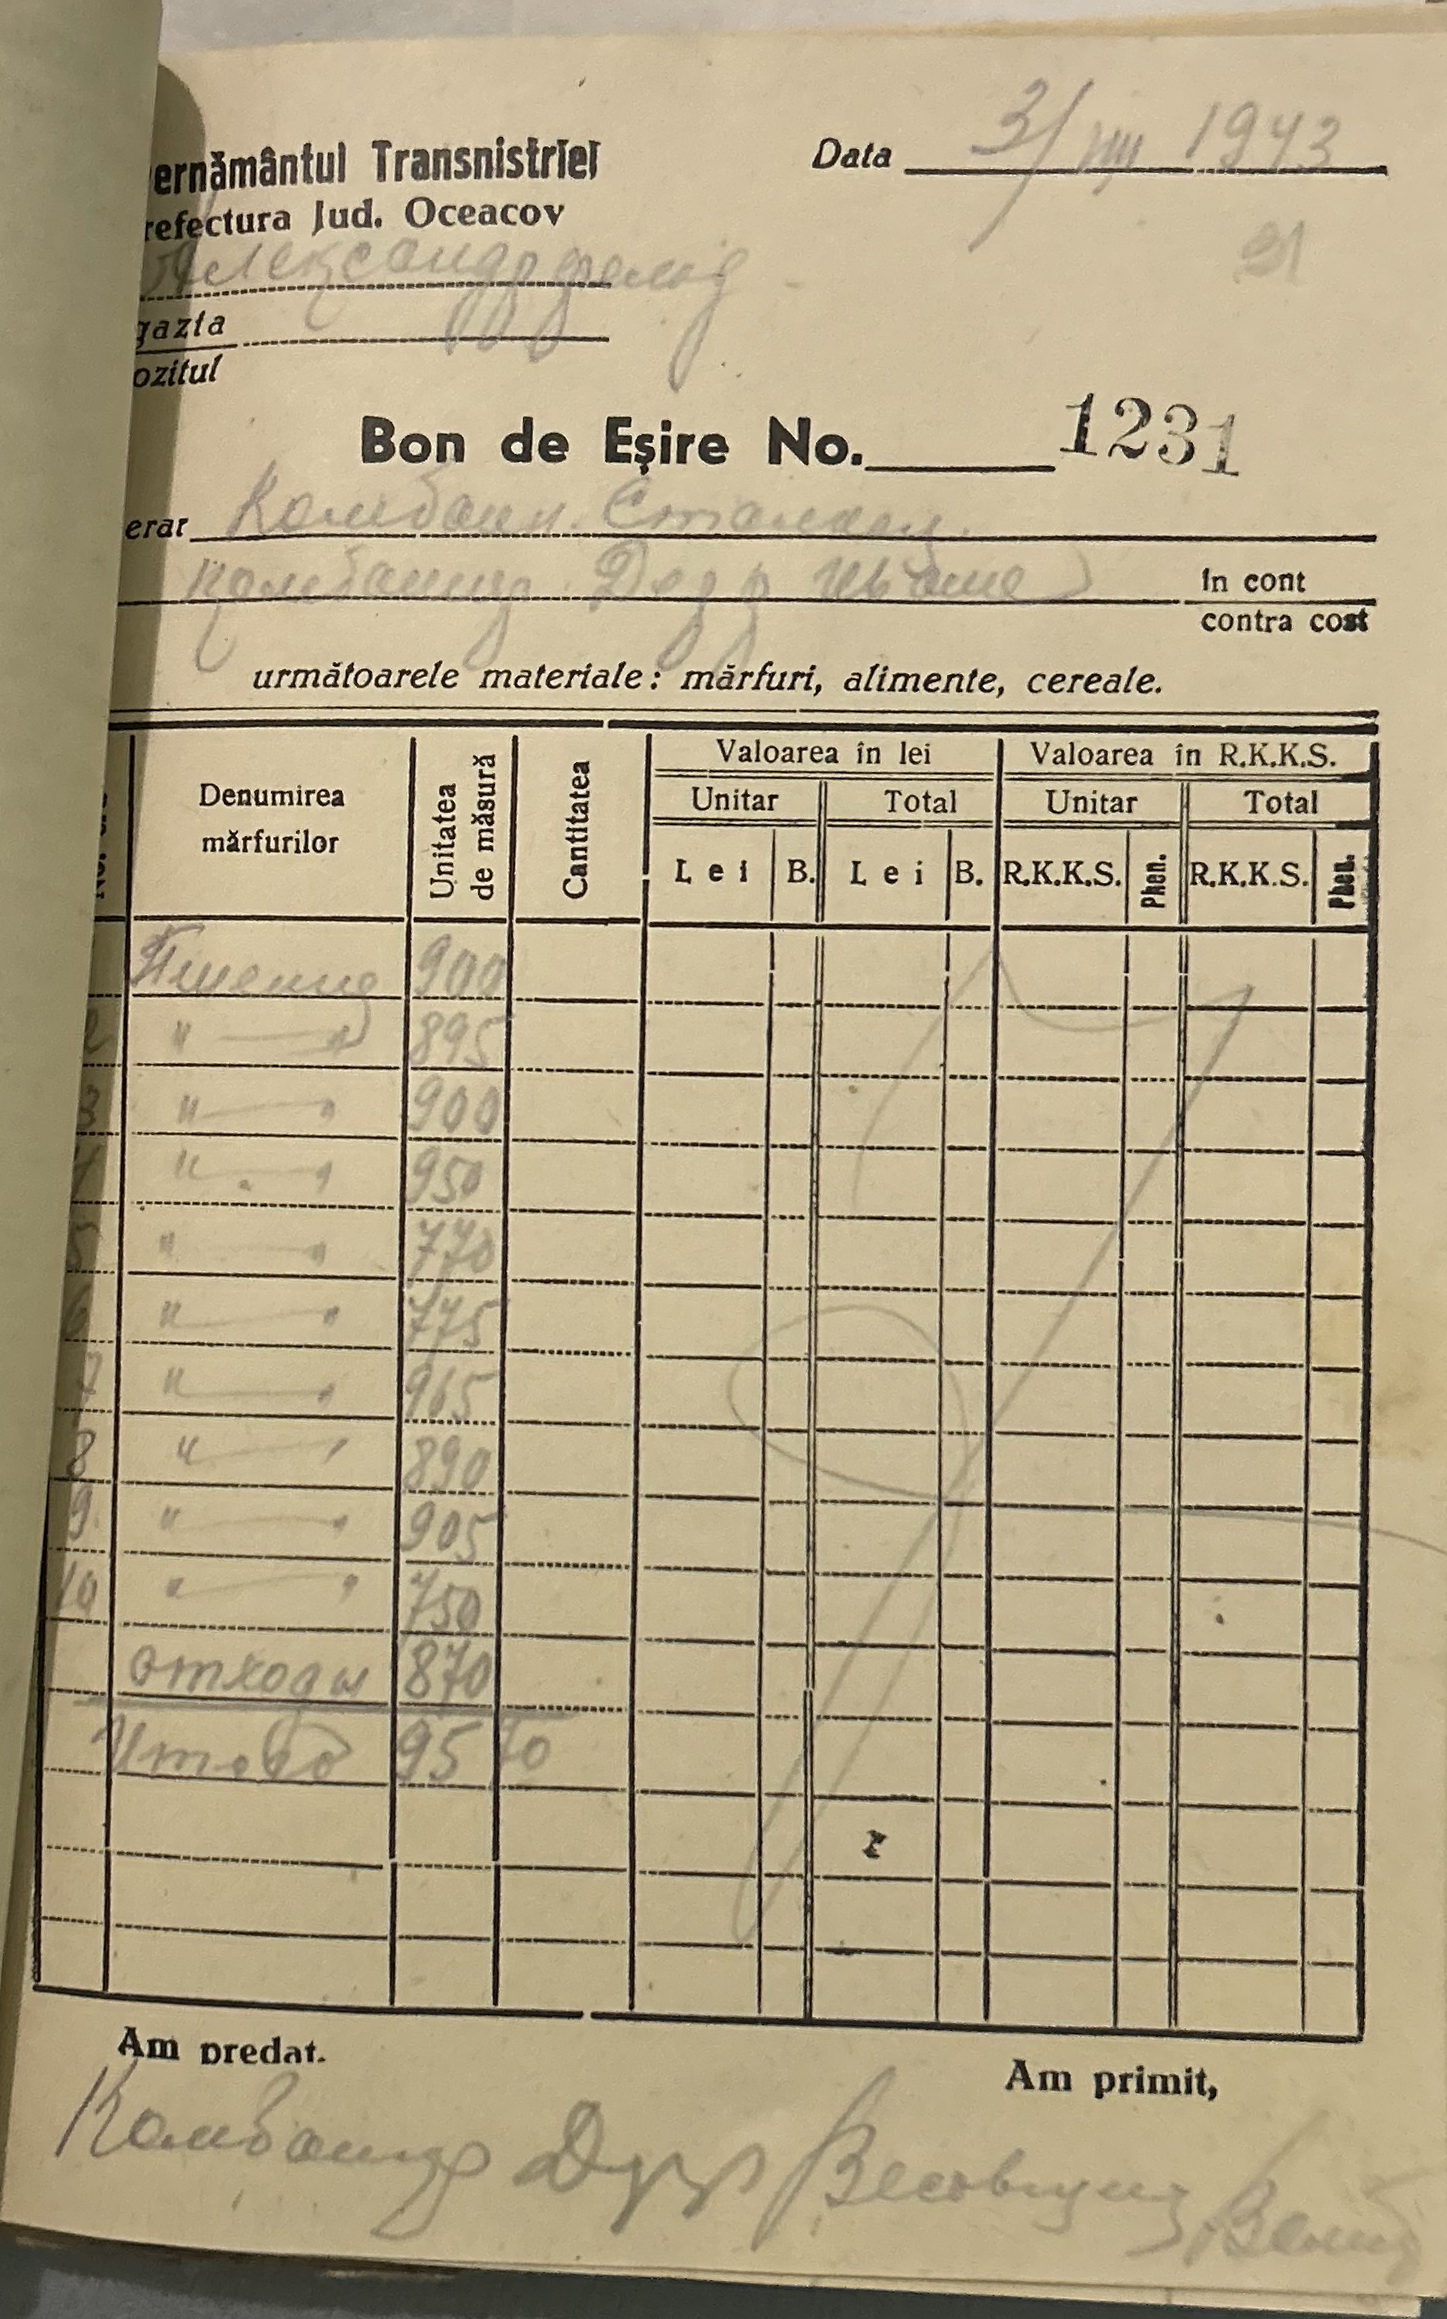 ernământul Transnistriei
Data 3/VIII 1943
refectura Jud. Oceacov
Александрфельд
21
gazia
ozitul
Bon de Eșire No. 1231
erar Комбайн. Сталинец.
комбайнер Дерр Иване
în cont
contra cost
următoarele materiale: mărfuri, alimente, cereale.
Denumirea mărfurilor Unitatea de măsură Cantitatea Valoarea în lei Valoarea în R.K.K.S.
Unitar Total Unitar Total
Lei B. Lei B. R.K.K.S. Phen. R.K.K.S. Phen.
Пшениц 900
2 " — " 895
3 " — " 900
4 " — " 950
5 " — " 770
6 " — " 775
7 " — " 965
8 " — " 890
9. " — " 905
10 " — " 750
отходы 870
Итого 9570
Am predat.
Am primit,
Комбайнер Дерр Весовщик